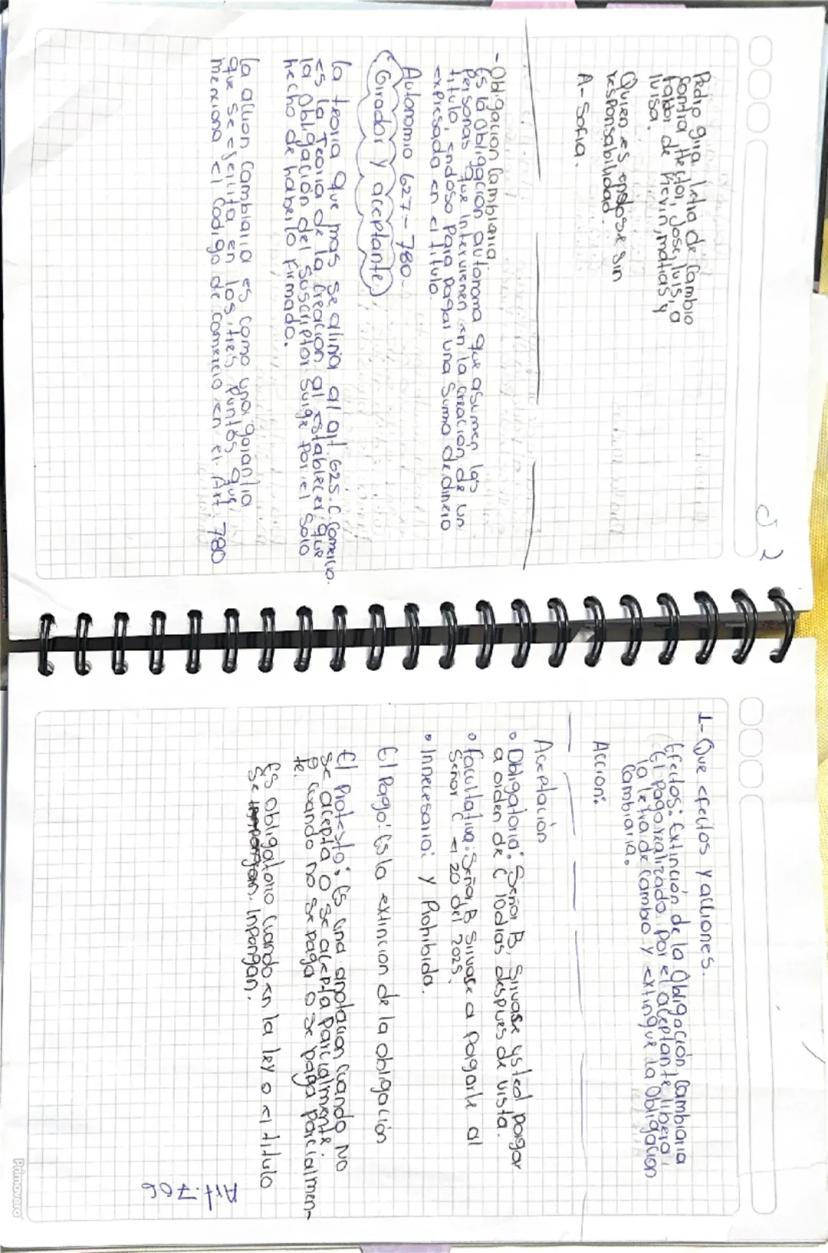 Pedro gira letra de cambio
contra Hector, Jose, luis, a
favor de Kevin, matias y
luisa.
Quien es endose sin
responsabilidad.
A- Sofia.
- Obligacion Cambiaria
Es la obligación autonoma que asumen las
personas que intervienen en la creación de un
titulo, endoso para pagar una suma de dinero
expresada en el titulo.
Autonomia 627 - 780.
Girador y aceptante
la teoria que mas se alinia al art. 625. C Comercio.
es la teoria de la creacion al establecer que
la obligación del suscriptor surge por el solo
hecho de haberlo firmado.
la accion Cambiaria es como una garantia
que se ejercita en los tres puntos que
menciona el Codigo de comercio en el Art. 780
1- Que efectos y acciones.
Efectos: Extinción de la Obligación Cambiaria
El pago realizado por el aceptante libera
la letra de cambio y extingue la Obligación
Cambiaria.
Accion:
Aceptación
• Obligatoria: Señor B, Sirvase usted pagar
a orden de C 10 dias despues de vista.
• facultativa: Señor B Sirvase a pagarle al
Señor C el 20 del 2025.
• Innecesaria: y Prohibida.
El Pago: Es la extincion de la obligación
El Protesto: Es una anotacion cuando no
se acepta o se acepta parcialmente.
cuando no se paga o se paga parcialmen-
te.
Es obligatorio cuando en la ley o el titulo
se inpongan.
Art. 706
Primavera